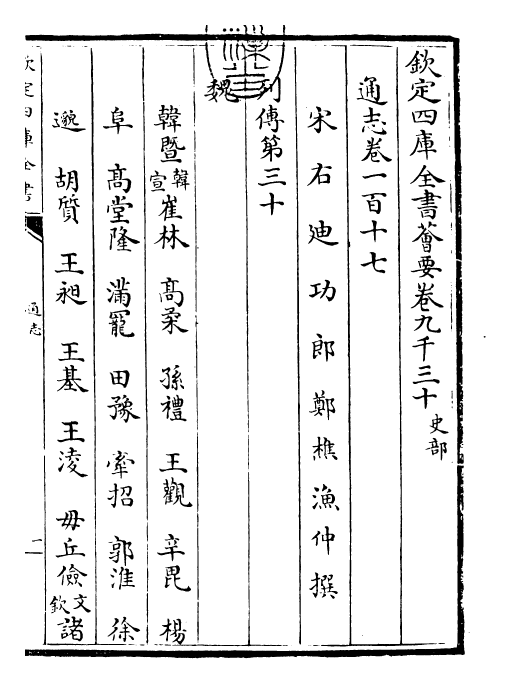 欽定四庫全書薈要卷九千三十 史部
通志卷一百十七
宋右迪功郎鄭樵漁仲撰
列傳第三十
魏
韓暨 韓宣 崔林 高柔 孫禮 王觀 辛毘 楊
阜 高堂隆 滿寵 田豫 牽招 郭淮 徐
邈 胡質 王昶 王基 王淩 毋丘儉 文欽 諸
欽定四庫全書
通志